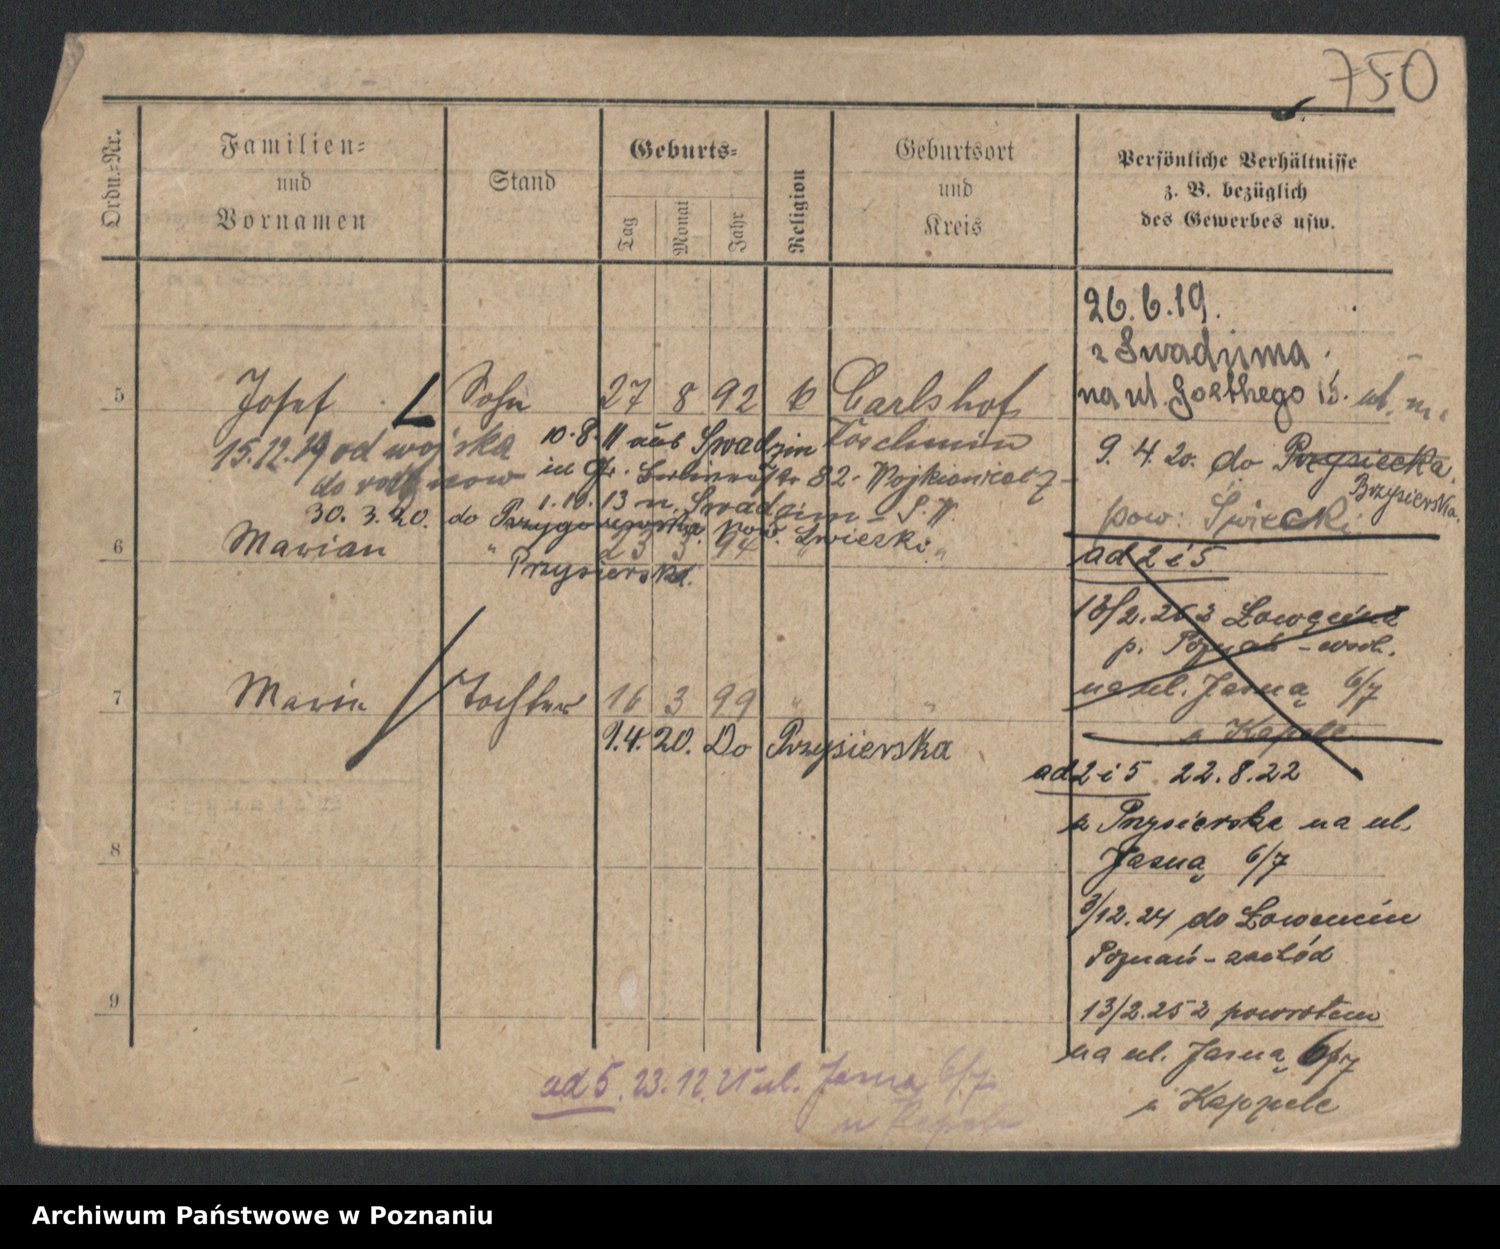 750
Ordn.-Nr.
Familien-
und
Vornamen
Stand
Geburts-
Tag
Monat
Jahr
Religion
Geburtsort
und
Kreis
Persönliche Verhältnisse
z. B. bezüglich
des Gewerbes usw.
26.6.19.
z Swadzima
na ul. Goethego 15.
5 Josef Sohn 27 8 92 k Carlshof
Koschmin
15.12.19 od wojska
10.8.11 aus Swadzin
in Gr. Berlinerstr 82
1.10.13 n. Swadzim
30. 3. 20. do pow. Swiecki
Przysierska.
6 Marian " 23 3 94 " "
9. 4. 20. do Przysiecka.
Brzysierska.
pow: Świecki.
ad 2 i 5
13/2. 25 z Łowęcina
p. Poznań - wsch.
na ul. Jasną 6/7
u Kapele
7 Marie Tochter 16 3 99 " "
1.4.20. Do Przysierska
ad 2 i 5 22.8.22
z Przysierska na ul.
Jasną 6/7
8
3/12.24 do Łowencin
Poznań - zachód
9
13/2.25 z powrotem
na ul. Jasną 6/7
u Kappele
ad 5. 23.12.25 ul. Jasna 6/7
u Kapele
Archiwum Państwowe w Poznaniu